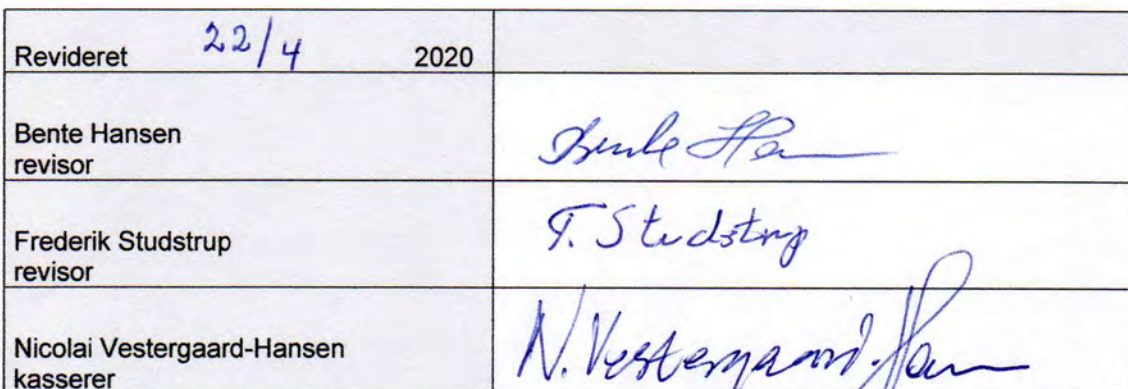 Revideret 22/4 2020
Bente Hansen
revisor
Bente Han
Frederik Studstrup
revisor
F. Studstrup
Nicolai Vestergaard-Hansen
kasserer
N. Vestergaard-Han